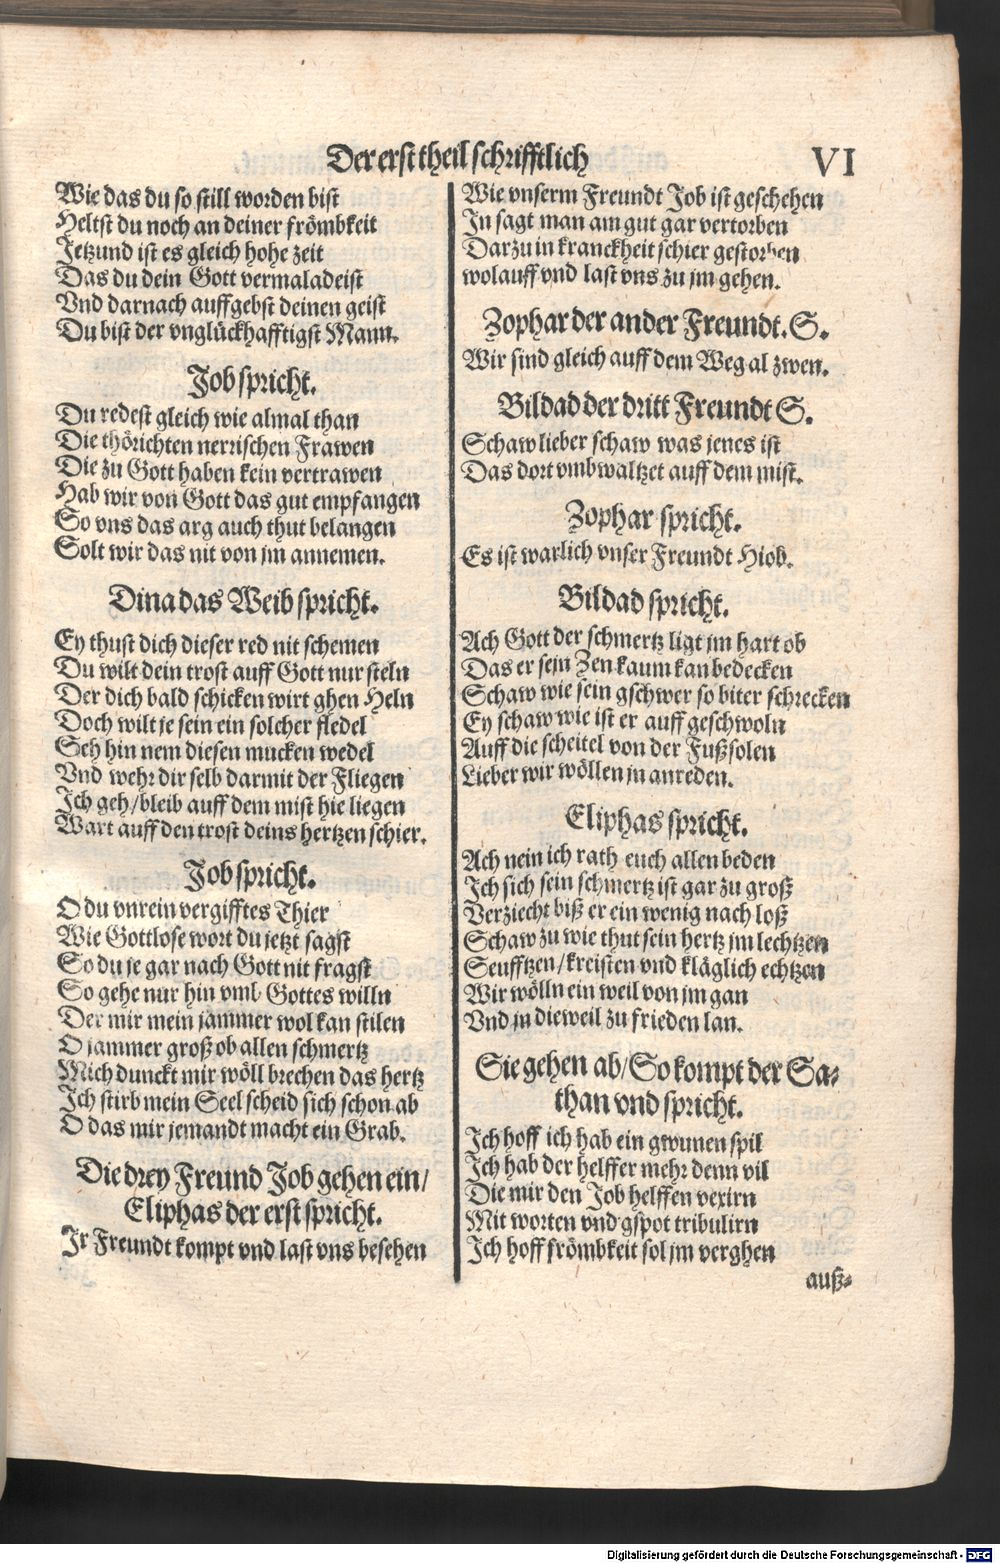 Der erst theil schrifftlich
VI
Wie das du so still worden bist
Heltst du noch an deiner frömbkeit
Jetzund ist es gleich hohe zeit
Das du dein Gott vermaladeist
Vnd darnach auffgebst deinen geist
Du bist der vnglückhafftigst Mann.
Job spricht.
Du redest gleich wie almal than
Die thörichten nerrischen Frawen
Die zu Gott haben kein vertrawen
Hab wir von Gott das gut empfangen
So vns das arg auch thut belangen
Solt wir das nit von jm annemen.
Dina das Weib spricht.
Ey thust dich dieser red nit schemen
Du wilt dein trost auff Gott nur steln
Der dich bald schicken wirt ghen Heln
Doch wilt je sein ein solcher fledel
Seh hin nem diesen mucken wedel
Vnd wehr dir selb darmit der Fliegen
Ich geh/bleib auff dem mist hie liegen
Wart auff den trost deins hertzen schier.
Job spricht.
O du vnrein vergifftes Thier
Wie Gottlose wort du jetzt sagst
So du je gar nach Gott nit fragst
So gehe nur hin vmb Gottes willn
Der mir mein jammer wol kan stilen
O jammer groß ob allen schmertz
Mich dunckt mir wöll brechen das hertz
Ich stirb mein Seel scheid sich schon ab
O das mir jemandt macht ein Grab.
Die drey Freund Job gehen ein/
Eliphas der erst spricht.
Jr Freundt kompt vnd last vns besehen
Wie vnserm Freundt Job ist geschehen
In sagt man am gut gar vertorben
Darzu in kranckheit schier gestorben
wolauff vnd last vns zu jm gehen.
Zophar der ander Freundt. S.
Wir sind gleich auff dem Weg al zwen.
Bildad der dritt Freundt S.
Schaw lieber schaw was jenes ist
Das dort vmbwaltzet auff dem mist.
Zophar spricht.
Es ist warlich vnser Freundt Hiob.
Bildad spricht.
Ach Gott der schmertz ligt jm hart ob
Das er sein Zen kaum kan bedecken
Schaw wie sein gschwer so biter schrecken
Ey schaw wie ist er auff geschwoln
Auff die scheitel von der Fußsolen
Lieber wir wöllen jn anreden.
Eliphas spricht.
Ach nein ich rath euch allen beden
Ich sich sein schmertz ist gar zu groß
Verziecht biß er ein wenig nach loß
Schaw zu wie thut sein hertz jm lechtzen
Seufftzen/kreisten vnd kläglich echtzen
Wir wölln ein weil von jm gan
Vnd jn dieweil zu frieden lan.
Sie gehen ab/So kompt der Sa-
than vnd spricht.
Ich hoff ich hab ein gwunen spil
Ich hab der helffer mehr denn vil
Die mir den Job helffen vexirn
Mit worten vnd gspot tribulirn
Ich hoff frömbkeit sol jm verghen
auß-
Digitalisierung gefördert durch die Deutsche Forschungsgemeinschaft - DFG